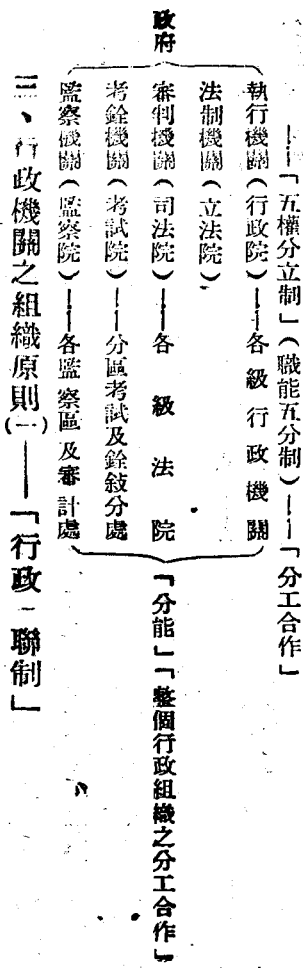 ——「五權分立制」(職能五分制)——「分工合作」
政府
執行機關(行政院)——各級行政機關
法制機關(立法院)
審判機關(司法院)——各級法院
考銓機關(考試院)——分區考試及銓敍分處
監察機關(監察院)——各監察區及審計處
「分能」「整個行政組織之分工合作」
三、行政機關之組織原則(一)——「行政三聯制」